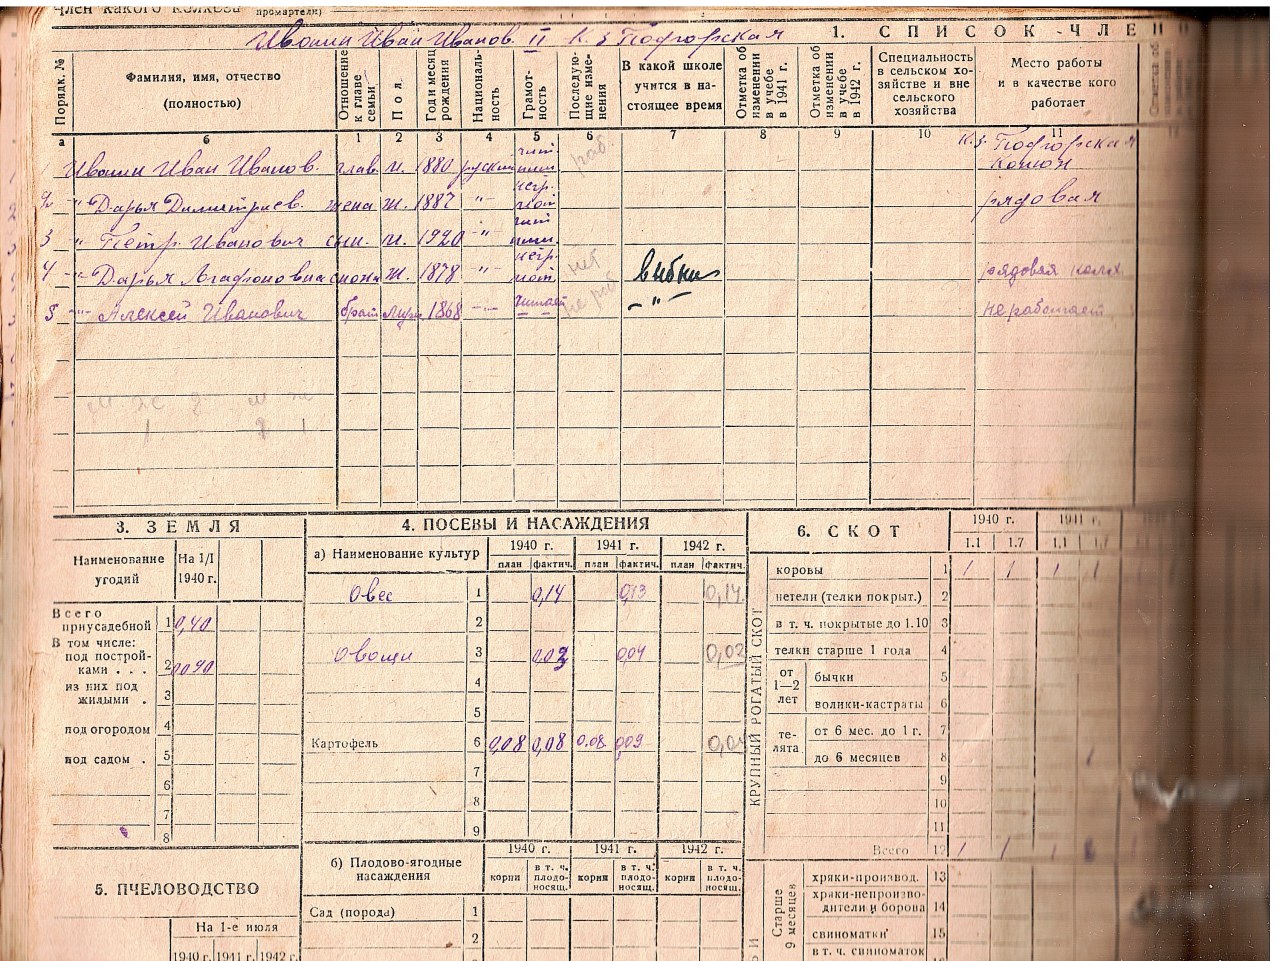 член какого колхоза промартели)
Ивошин Иван Иванов. II К-з Подгорская
1. СПИСОК ЧЛЕН
Порядк. №
Фамилия, имя, отчество
(полностью)
Отношение к главе семьи
Пол.
Год и месяц рождения
Националь-
ность
Грамот-
ность
Последую-
щие изме-
нения
В какой школе
учится в на-
стоящее время
Отметка об
изменении
в учебе
в 1941 г.
Отметка об
изменении
в учебе
в 1942 г.
Специальность
в сельском хо-
зяйстве и вне
сельского
хозяйства
Место работы
и в качестве кого
работает
а 6 1 2 3 4 5 6 7 8 9 10 11
1 Ивошин Иван Иванов. глав. м. 1880 руский раб. К-з. Подгорская конюх
2 -"- Дарья Димитриев. жена ж. 1887 -"- негр. рядовая
3 -"- Петр Иванович сын. м. 1920 -"-
4 -"- Дарья Агафоновна сноха ж. 1878 -"- негр. нет выбыл рядовая колх
5 -"- Алексей Иванович брат муж 1868 -"- читает не раб -"- не работает
м ж м ж
3. ЗЕМЛЯ
Наименование
угодий
На 1/I
1940 г.
Всего
приусадебной 1 0,40
В том числе:
под построй-
ками . . . 2 0090
из них под
жилыми . 3
под огородом 4
под садом . 5
6
7
8
5. ПЧЕЛОВОДСТВО
На 1-е июля
1940 г. 1941 г. 1942 г.
4. ПОСЕВЫ И НАСАЖДЕНИЯ
а) Наименование культур
1940 г. 1941 г. 1942 г.
план фактич. план фактич. план фактич.
Овес 1 0,14 0,13 0,14
2
Овощи 3 0,03 0,04 0,02
4
5
Картофель 6 0,08 0,08 0.08 0,09
7
8
9
б) Плодово-ягодные
насаждения
1940 г. 1941 г. 1942 г.
корни в т. ч. плодо-
носящ. корни в т. ч. плодо-
носящ. корни в т. ч. плодо-
носящ.
Сад (порода) 1
2
6. СКОТ
1940 г. 1941 г.
1.1 1.7 1.1 1.7
КРУПНЫЙ РОГАТЫЙ СКОТ
коровы 1 1 1 1 1
нетели (телки покрыт.) 2
в т. ч. покрытые до 1.10 3
телки старше 1 года 4
от
1—2
лет
бычки 5
волики-кастраты 6
те-
лята
от 6 мес. до 1 г. 7
до 6 месяцев 8 1
9
10
11
Всего 12 1 1 1
Старше
9 месяцев
хряки-производ. 13
хряки-непроизво-
дители и борова 14
свиноматки 15
в т. ч. свиноматок